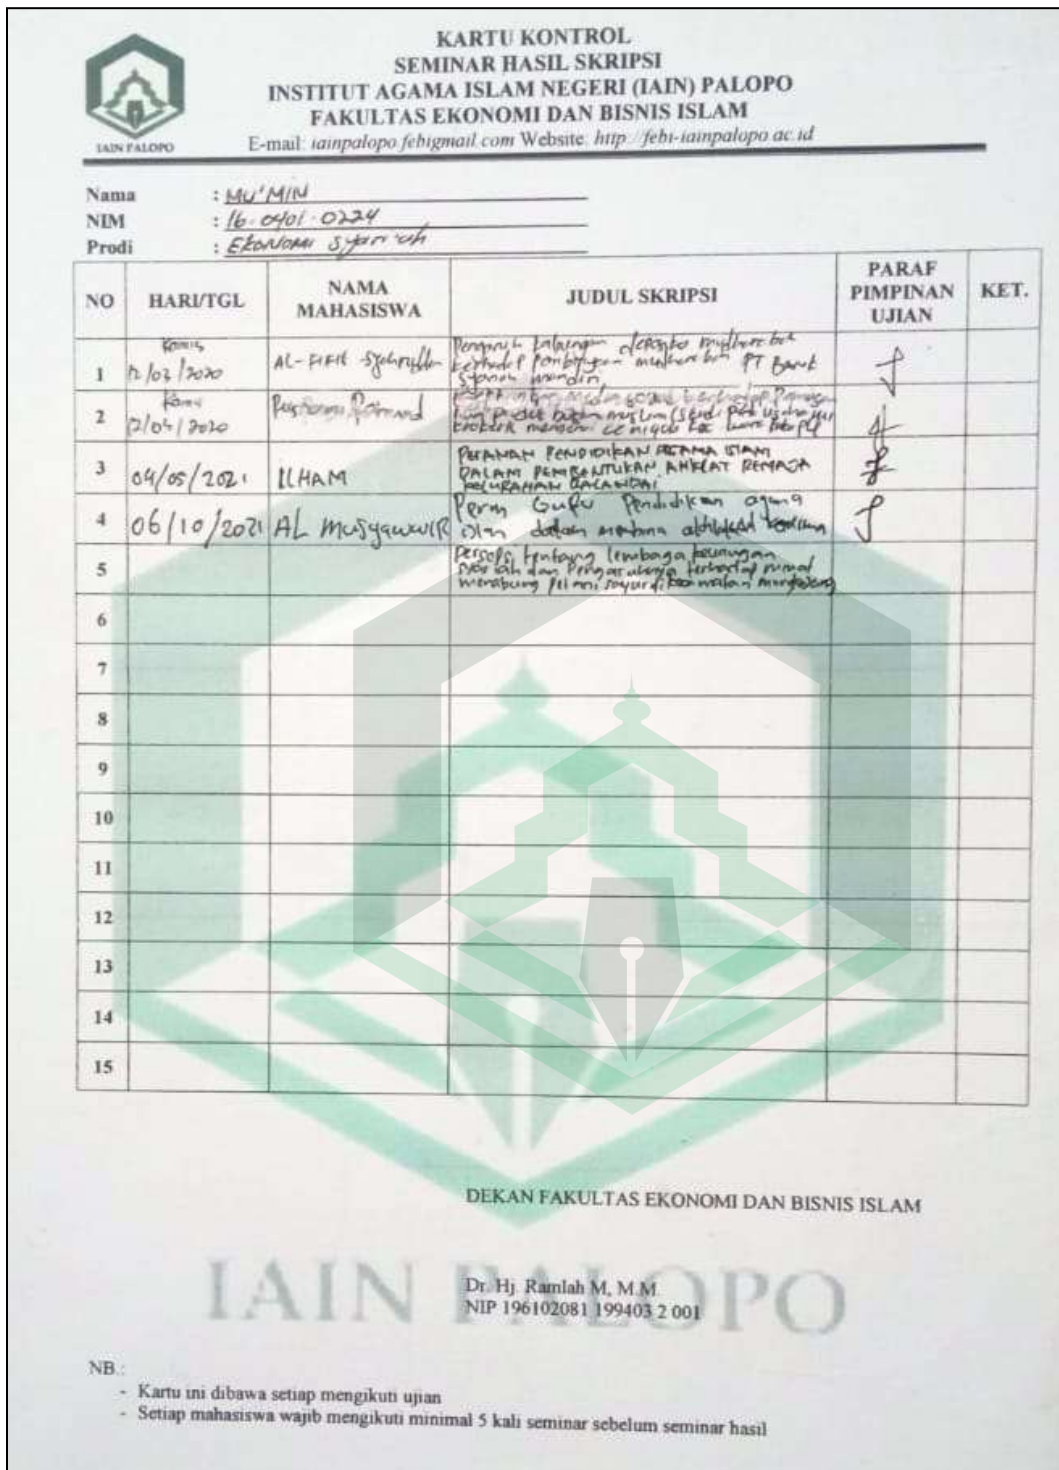 KARTU KONTROL
SEMINAR HASIL SKRIPSI
INSTITUT AGAMA ISLAM NEGERI (IAIN) PALOPO
FAKULTAS EKONOMI DAN BISNIS ISLAM
E-mail: iainpalopo.febigmail.com Website: http://febi-iainpalopo.ac.id
IAIN PALOPO
Nama : MU'MIN
NIM : 16.0401.0224
Prodi : EKONOMI Syari'ah
NO HARI/TGL NAMA MAHASISWA JUDUL SKRIPSI PARAF PIMPINAN UJIAN KET.
1 Kamis 12/03/2020 AL-FIFIL
Pengaruh deposito
terhadap PT Bank
mandiri
2 12/04/2020
media sosial terhadap
3 04/05/2021 ILHAM
PERANAN PENDIDIKAN AGAMA ISLAM
DALAM PEMBENTUKAN AHKLAT REMAJA
KELURAHAN BALANDAI
4 06/10/2021 AL MUSYAWWIR
Peran Guru Pendidikan agama
Islam dalam
5
Persepsi tentang lembaga keuangan
syariah dan Pengaruhnya terhadap minat
menabung petani sayur di
6
7
8
9
10
11
12
13
14
15
DEKAN FAKULTAS EKONOMI DAN BISNIS ISLAM
IAIN PALOPO
Dr. Hj. Ramlah M, M.M.
NIP 196102081 199403 2 001
NB.:
- Kartu ini dibawa setiap mengikuti ujian
- Setiap mahasiswa wajib mengikuti minimal 5 kali seminar sebelum seminar hasil